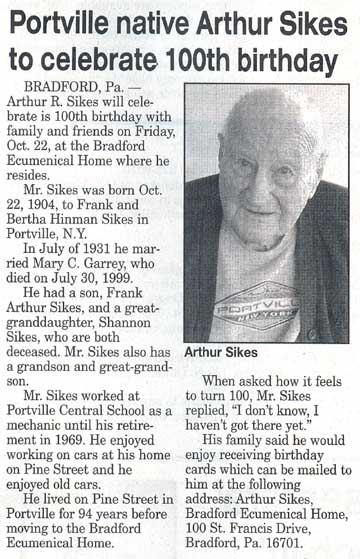 Portville native Arthur Sikes
to celebrate 100th birthday
BRADFORD, Pa. —
Arthur R. Sikes will cele-
brate is 100th birthday with
family and friends on Friday,
Oct. 22, at the Bradford
Ecumenical Home where he
resides.
Mr. Sikes was born Oct.
22, 1904, to Frank and
Bertha Hinman Sikes in
Portville, N.Y.
In July of 1931 he mar-
ried Mary C. Garrey, who
died on July 30, 1999.
He had a son, Frank
Arthur Sikes, and a great-
granddaughter, Shannon
Sikes, who are both
deceased. Mr. Sikes also has
a grandson and great-grand-
son.
Mr. Sikes worked at
Portville Central School as a
mechanic until his retire-
ment in 1969. He enjoyed
working on cars at his home
on Pine Street and he
enjoyed old cars.
He lived on Pine Street in
Portville for 94 years before
moving to the Bradford
Ecumenical Home.
PORTVILLE
NEW YORK
Arthur Sikes
When asked how it feels
to turn 100, Mr. Sikes
replied, “I don’t know, I
haven’t got there yet.”
His family said he would
enjoy receiving birthday
cards which can be mailed to
him at the following
address: Arthur Sikes,
Bradford Ecumenical Home,
100 St. Francis Drive,
Bradford, Pa. 16701.